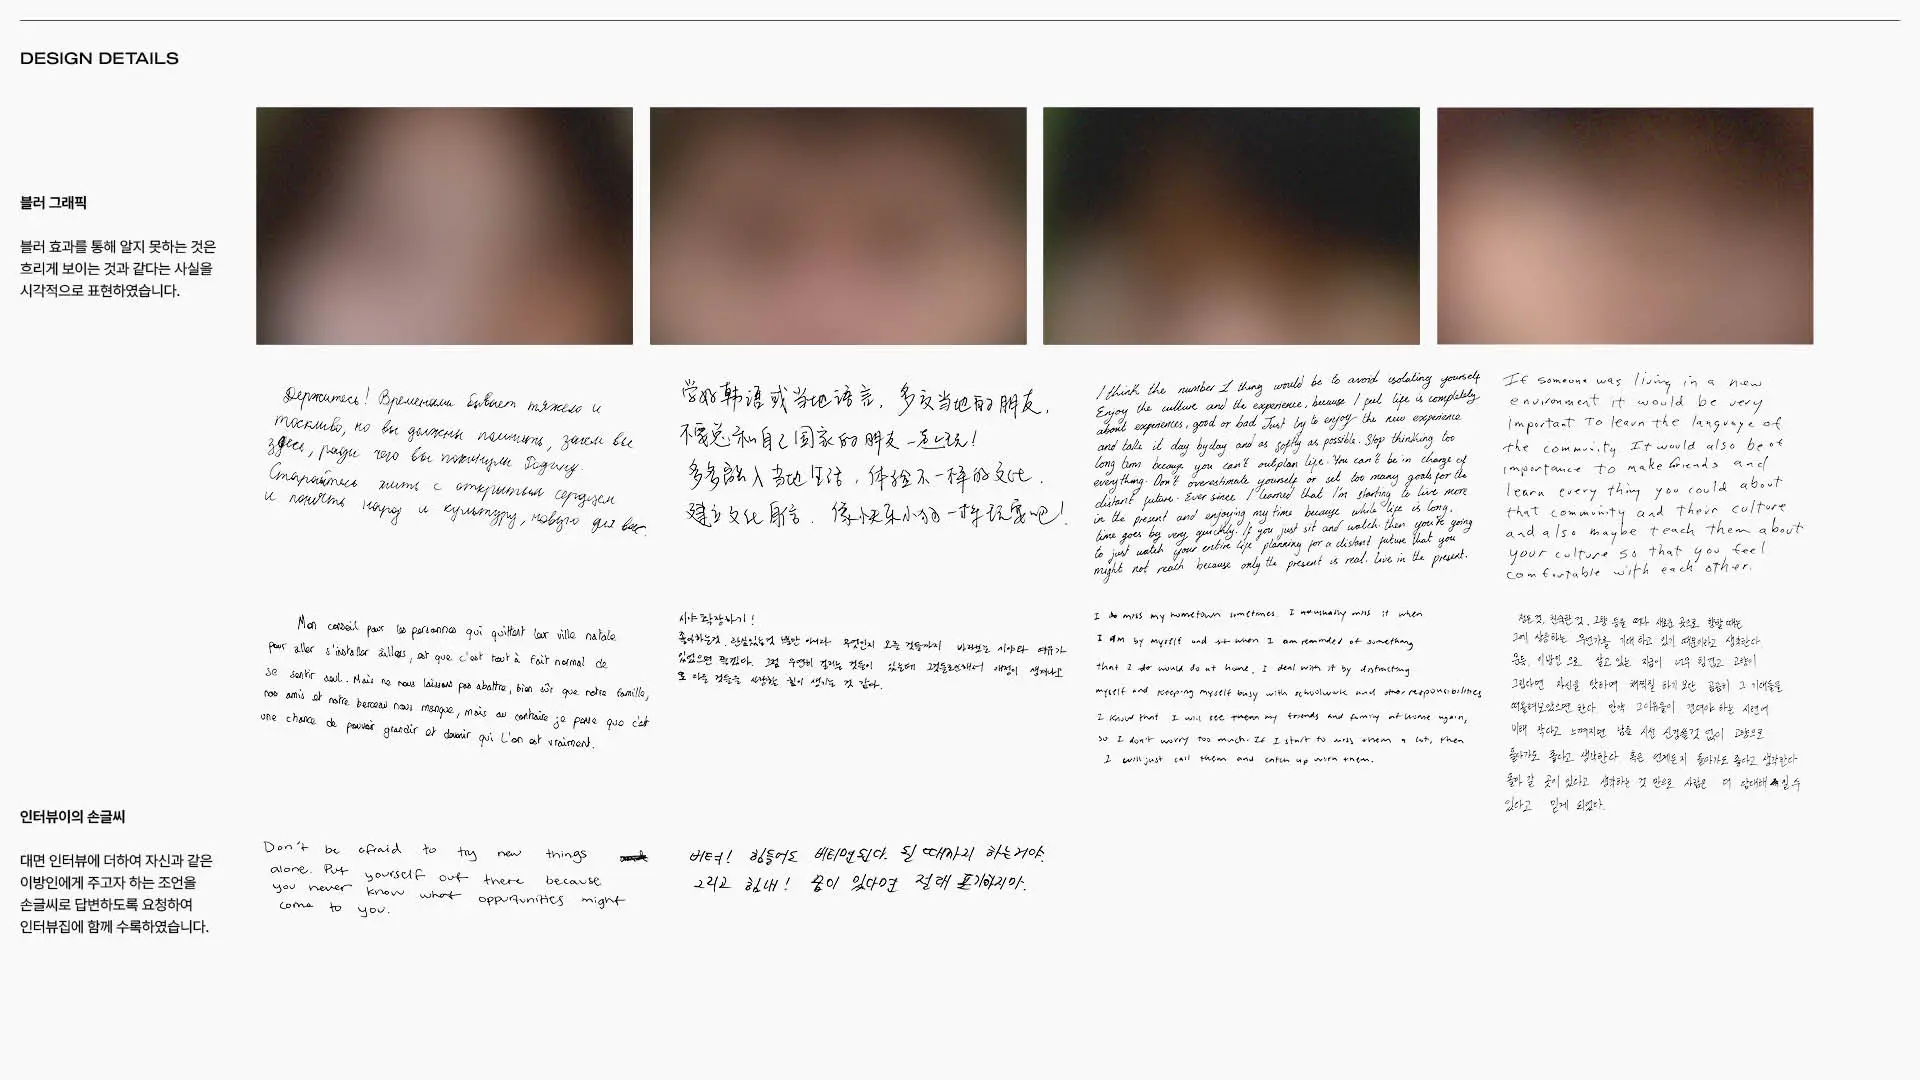 DESIGN DETAILS
블러 그래픽
블러 효과를 통해 알지 못하는 것은
흐리게 보이는 것과 같다는 사실을
시각적으로 표현하였습니다.
Держитесь! Временами бывает тяжело и
тоскливо, но вы должны помнить, зачем вы
здесь, ради чего вы покинули Родину.
Старайтесь жить с открытым сердцем
и понять народ и культуру, новую для вас.
学好韩语或当地语言，多交当地的朋友，
不要总和自己国家的朋友一起玩！
多多融入当地生活，体验不一样的文化，
建立文化自信，像快乐小狗一样玩耍吧！
I think the number 1 thing would be to avoid isolating yourself
Enjoy the culture and the experience, because I feel life is completely
about experiences, good or bad. Just try to enjoy the new experience
and take it day by day and as softly as possible. Stop thinking too
long term because you can't outplan life. You can't be in charge of
everything. Don't overestimate yourself or set too many goals for the
distant future. Ever since I learned that I'm starting to live more
in the present and enjoying my time because while life is long,
time goes by very quickly. If you just sit and watch then you're going
to just watch your entire life planning for a distant future that you
might not reach because only the present is real. Live in the present.
If someone was living in a new
environment it would be very
important To learn the language of
the community It would also be of
importance to make friends and
learn every thing you could about
that community and their culture
and also maybe teach them about
your culture so that you feel
comfortable with each other.
Mon conseil pour les personnes qui quittent leur ville natale
pour aller s'installer ailleurs, est que c'est tout à fait normal de
se sentir seul. Mais ne nous laissons pas abattre, bien sûr que notre famille,
nos amis et notre berceau nous manque, mais au contraire je pense que c'est
une chance de pouvoir grandir et devenir qui l'on est vraiment.
시야 확장하기!
좋아하는것, 관심있는것 뿐만 아니라 무엇인지 모를 것들까지 바라보는 시야와 여유가
있었으면 좋겠다. 그럼 우연히 겹치는 것들이 있는데 그것들로인해서 애정이 생겨나고
또 다른 것들을 사랑할 힘이 생기는 것 같다.
I do miss my hometown sometimes. I usually miss it when
I am by myself and when I am reminded of something
that I would do at home. I deal with it by distracting
myself and keeping myself busy with schoolwork and other responsibilities
I know that I will see them my friends and family at home again,
so I don't worry too much. If I start to miss them a lot, then
I will just call them and catch up with them.
친한 것, 친숙한 것, 고향 등을 떠나 새로운 곳으로 향할 때는
그에 상응하는 무언가를 기대하고 있기 때문이라고 생각한다
만약, 이방인으로 살고 있는 지금이 너무 힘겹고 고향이
그립다면 자신을 탓하며 채찍질 하기보단 곰곰히 그 기대들을
떠올려보았으면 한다 만약 그이유들이 견뎌야 하는 시련에
비해 작다고 느껴지면 남들 시선 신경쓸것 없이 고향으로
돌아가도 좋다고 생각한다 혹은 언제든지 돌아가도 좋다고 생각한다
돌아 갈 곳이 있다고 생각하는 것 만으로 사람은 더 담대해질 수
있다고 믿게 되었다.
인터뷰이의 손글씨
대면 인터뷰에 더하여 자신과 같은
이방인에게 주고자 하는 조언을
손글씨로 답변하도록 요청하여
인터뷰집에 함께 수록하였습니다.
Don't be afraid to try new things
alone. Put yourself out there because
you never know what oppurtunities might
come to you.
버텨! 힘들어도 버티면된다. 될 때까지 하는거야.
그리고 힘내! 꿈이 있다면 절대 포기하지마.